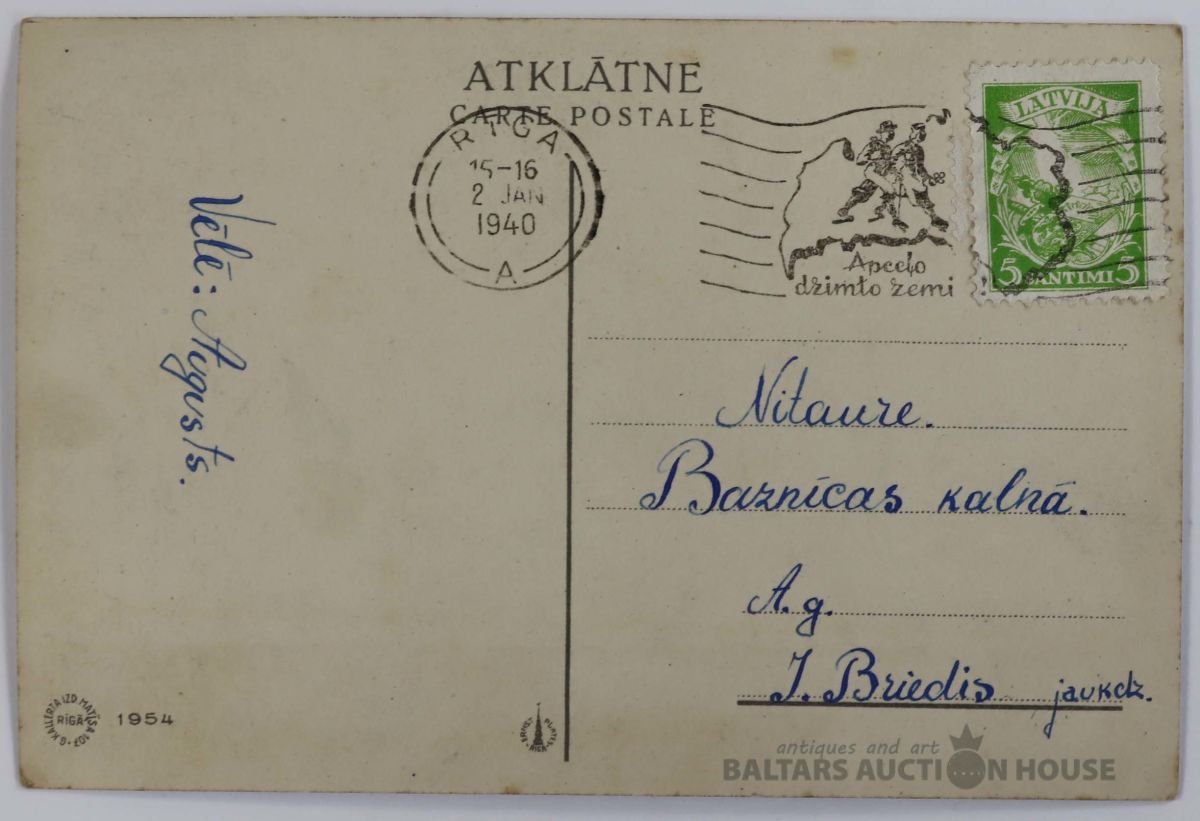 ATKLĀTNE
CARTE POSTALE
RĪGA
15-16
2 JAN
1940
A
Apceļo
dzimto zemi
LATVIJA
5 SANTIMI 5
Vēlē: Augusts.
Nītaure.
Baznīcas kalnā.
A. g.
J. Briedis jaukdz.
G. KALLERTA IZD. MATĪSA 103
RĪGĀ
1954
ERNST PLATES
RIGA
antiques and art
BALTARS AUCTION HOUSE